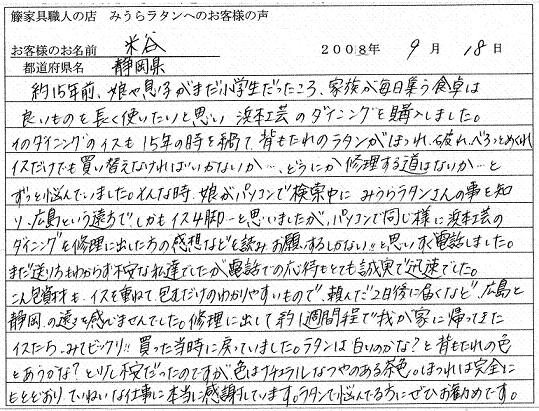 籐家具職人の店 みうらラタンへのお客様の声
お客様のお名前 米谷 2008年 9月 18日
都道府県名 静岡県
約15年前、娘や息子がまだ小学生だったころ、家族が毎日集う食卓は
良いものを長く使いたいと思い 浜本工芸のダイニングを購入しました。
そのダイニングのイスも15年の時を経て、背もたれのラタンがほつれ、破れ、べろっとめくれ
イスだけでも買い替えなければいかないか…、どうにか修理する道はないか…と
ずっと悩んでいました。そんな時、娘がパソコンで検索中に みうらラタンさんの事を知
り、広島という遠方で、しかもイス4脚…と思いましたが、パソコンで同じ様に浜本工芸の
ダイニングを修理に出した方の感想などを読み、お願いするしかない!!と思い求電話しました。
まだ送り方もわからず不安な私達でしたが電話での応待もとても誠実で迅速でした。
こん包資材も、イスを重ねて、包むだけのわかりやすいもので、頼んだ2日後に届くなど、広島と
静岡の遠さを感じませんでした。修理に出して約1週間程で我が家に帰ってきた
イスたち、みてビックリ!! 買った当時に戻っていました。ラタンは白いのかな?と背もたれの色
とあうかな?と少し不安だったのですが色はナチュラルなつやのある茶色。ほつれは完全に
もとどおり。ていねいな仕事に本当に感謝しています。ラタンで悩んでる方にぜひお勧めです。